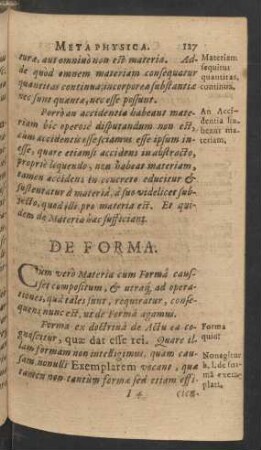 METAPHYSICA. 127
turæ, aut omnino non est materia. Ad-
de quòd omnem materiam consequatur
quantitas continua, incorporea substantiæ
nec sunt quantæ, nec esse possunt.
Materiam
sequitur
quantitas
continua.
Porrò an accidentia habeant mate-
riam hîc operosè disputandum non est,
cùm accidentis esse sciamus esse ipsum in-
esse, quare etiamsi accidens in abstracto,
propriè loquendo, non habeat materiam,
tamen accidens in concreto educitur &
sustentatur à materia, à suo videlicet sub-
jecto, quod ille pro materia est. Et qui-
dem de Materia hæc sufficiant.
An Acci-
dentia ha-
beant ma-
teriam.
DE FORMA.
Cùm verò Materia cum Formâ caus-
set compositum, & utraq́; ad opera-
tiones, quâ tales sunt, requiratur, conse-
quens nunc est, ut de Formâ agamus.
Forma ex doctrinâ de Actu ea co-
gnoscitur, quæ dat esse rei. Quare il-
lam formam non intelligimus, quam cau-
sam nonnulli Exemplarem vocant, quæ
tamen non tantùm forma sed etiam effi-
Forma
quid?
Non agitur
h. l. de for-
mâ exem-
plari.
I 4 cien-